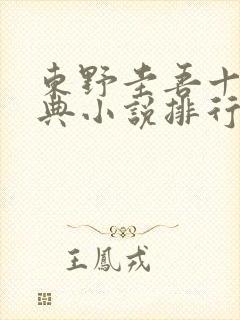 東野圭吾十
典小說排行
王鳳戎